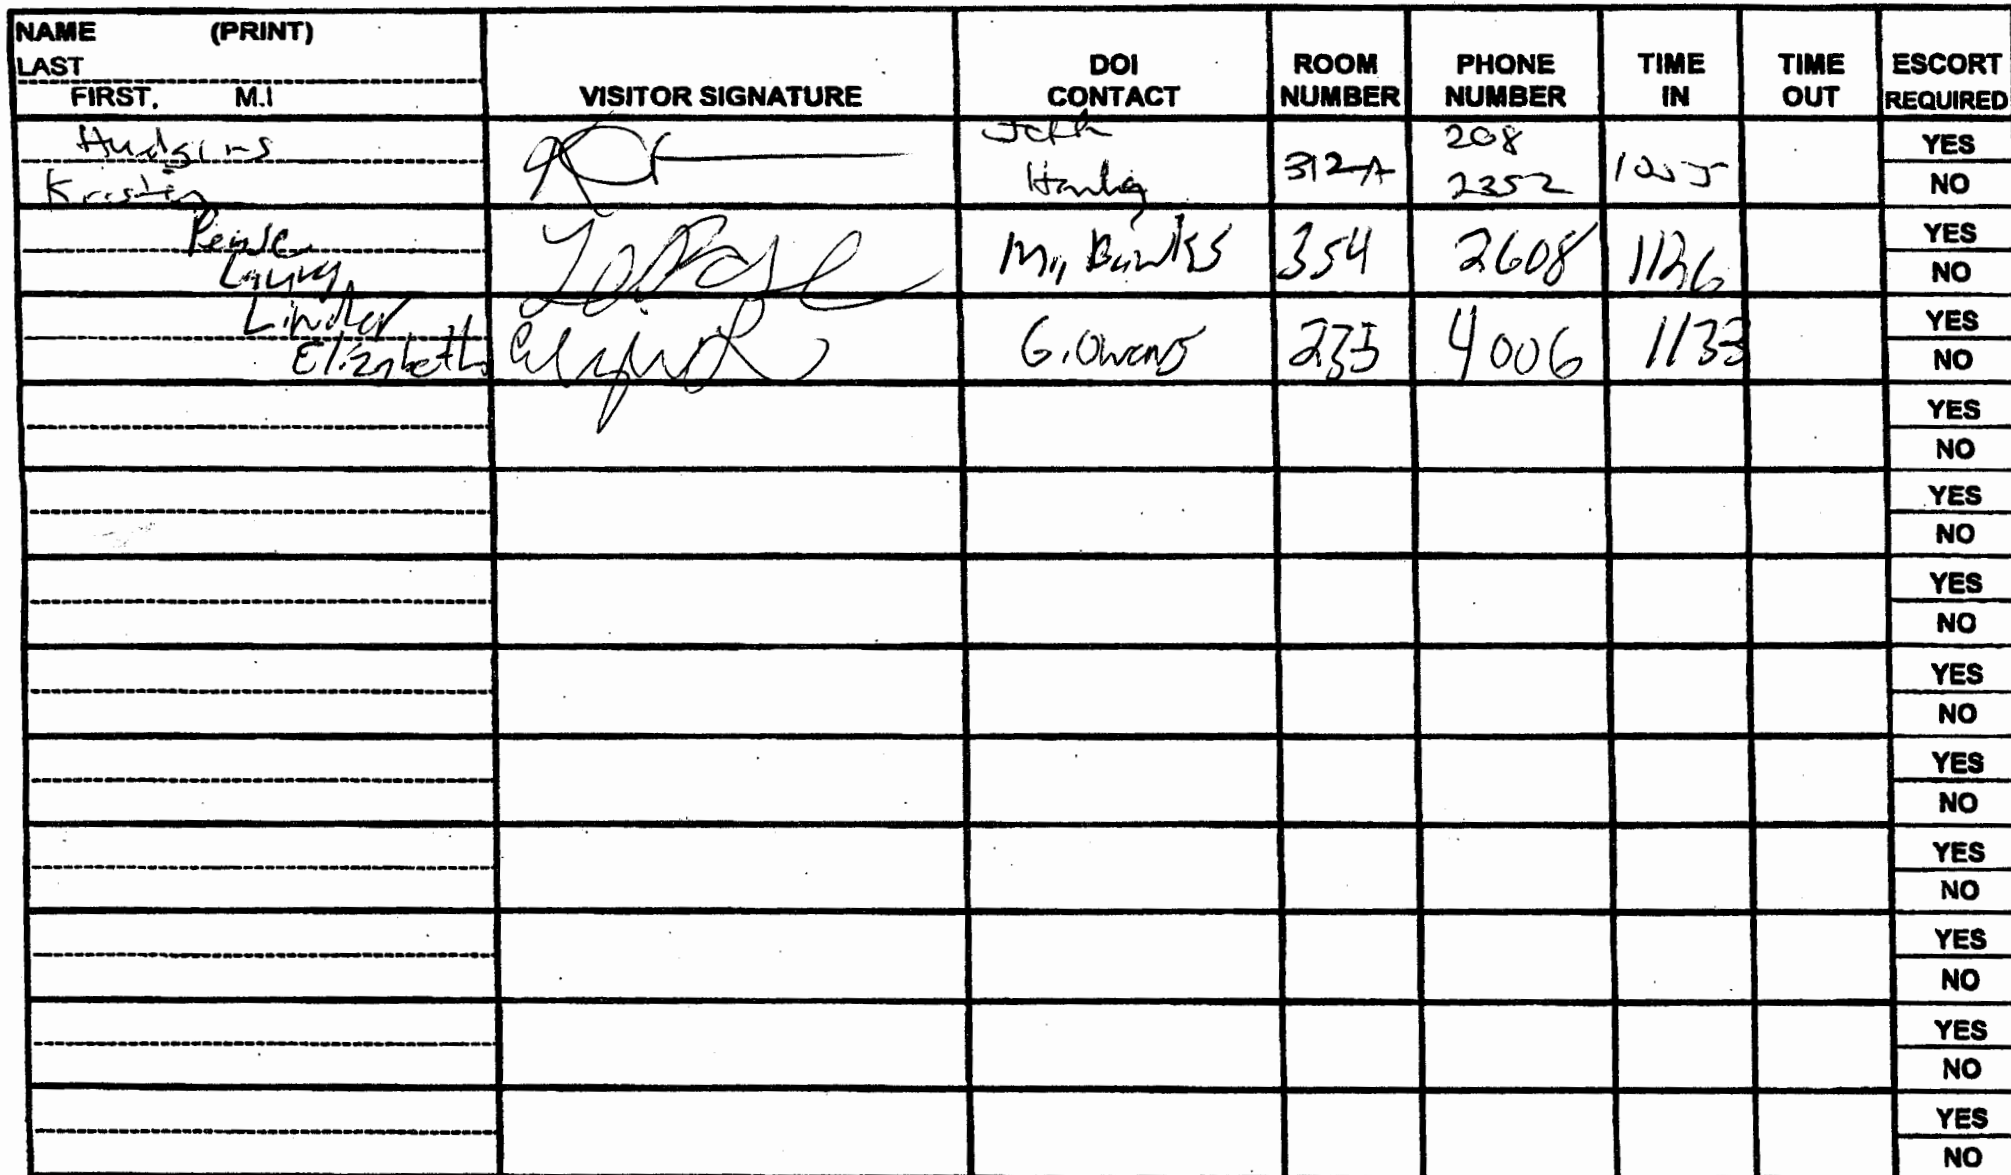 NAME (PRINT)
LAST
FIRST, M.I
VISITOR SIGNATURE
DOI
CONTACT
ROOM
NUMBER
PHONE
NUMBER
TIME
IN
TIME
OUT
ESCORT
REQUIRED
Hudgins
Kristen
312-A
208
2352
1055
YES
NO
Laura
354
2608
1126
YES
NO
Linder
Elizabeth
G. Owens
235
4006
1133
YES
NO
YES
NO
YES
NO
YES
NO
YES
NO
YES
NO
YES
NO
YES
NO
YES
NO
YES
NO